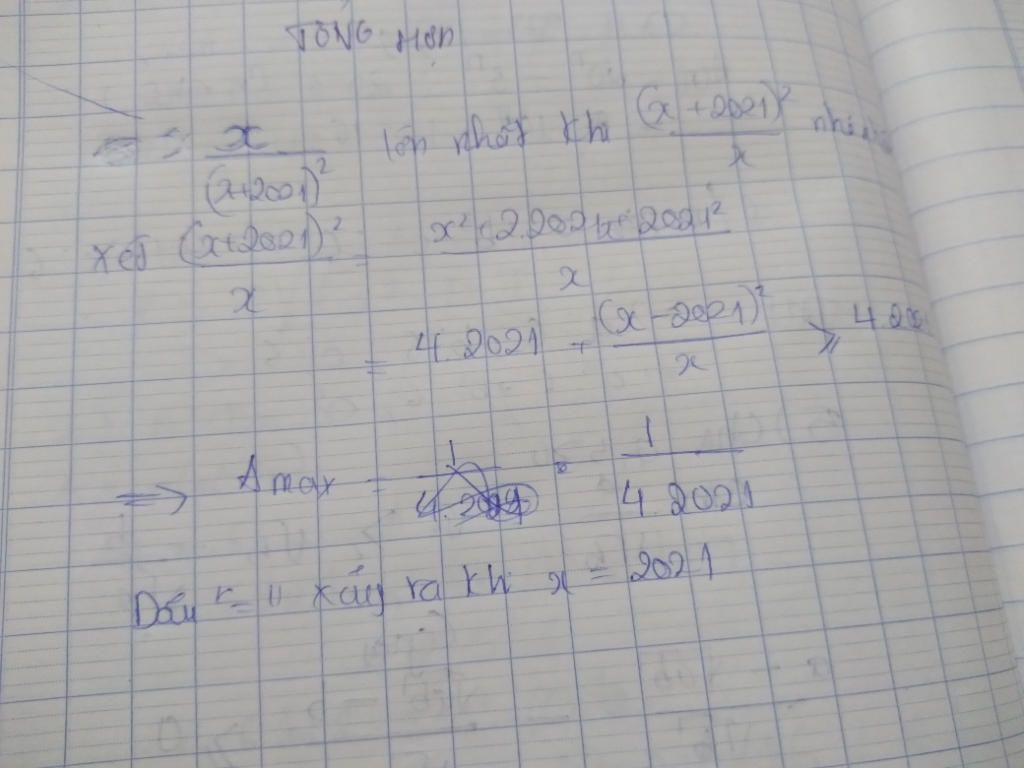 TỔNG HỢP
= x / (x+2001)² lớn nhất khi (x+2021)² / x
xét (x+2021)² / x = x²+2.2021x+2021² / x
= 4.2021 + (x-2021)² / x ≥
=> Amax = 1 / 4.2021
Dấu "=" xảy ra khi x = 2021